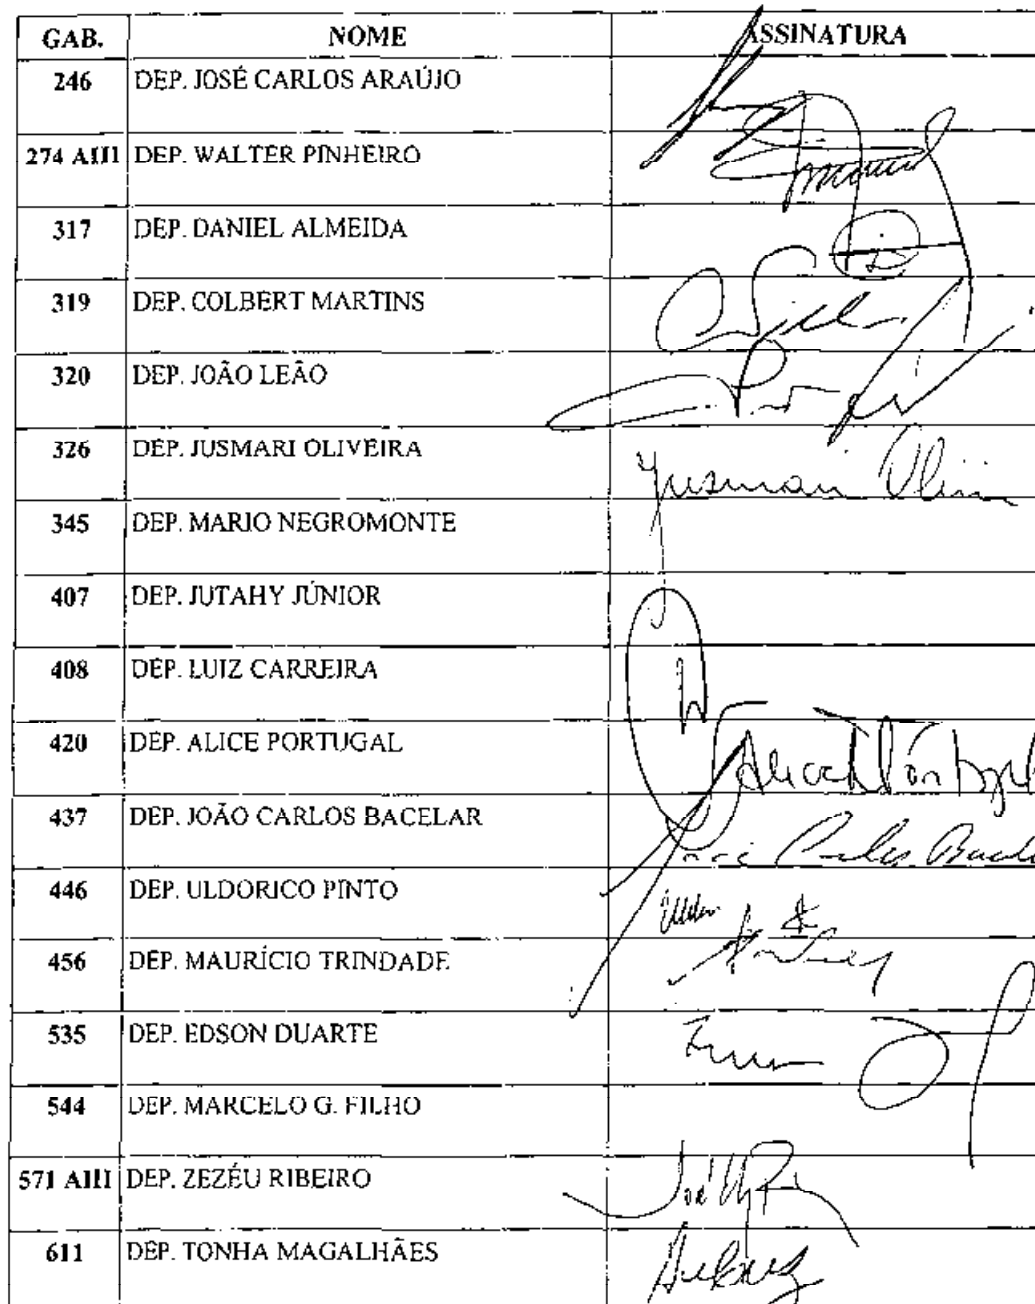 GAB. NOME ASSINATURA
246 DEP. JOSÉ CARLOS ARAÚJO
274 AIII DEP. WALTER PINHEIRO
317 DEP. DANIEL ALMEIDA
319 DEP. COLBERT MARTINS
320 DEP. JOÃO LEÃO
326 DEP. JUSMARI OLIVEIRA Jusmari
345 DEP. MARIO NEGROMONTE
407 DEP. JUTAHY JÚNIOR
408 DEP. LUIZ CARREIRA
420 DEP. ALICE PORTUGAL
437 DEP. JOÃO CARLOS BACELAR
446 DEP. ULDORICO PINTO
456 DEP. MAURÍCIO TRINDADE
535 DEP. EDSON DUARTE
544 DEP. MARCELO G. FILHO
571 AIII DEP. ZEZÉU RIBEIRO
611 DEP. TONHA MAGALHÃES